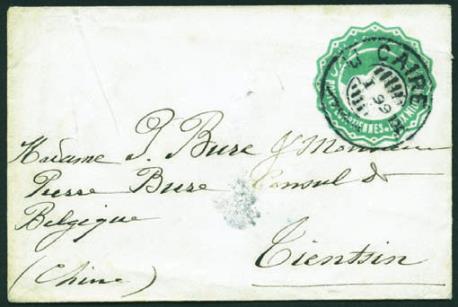 CAIRE
13 I 99
Madame P. Bure & Monsieur
Pierre Bure Consul de
Belgique
Tientsin
(Chine)